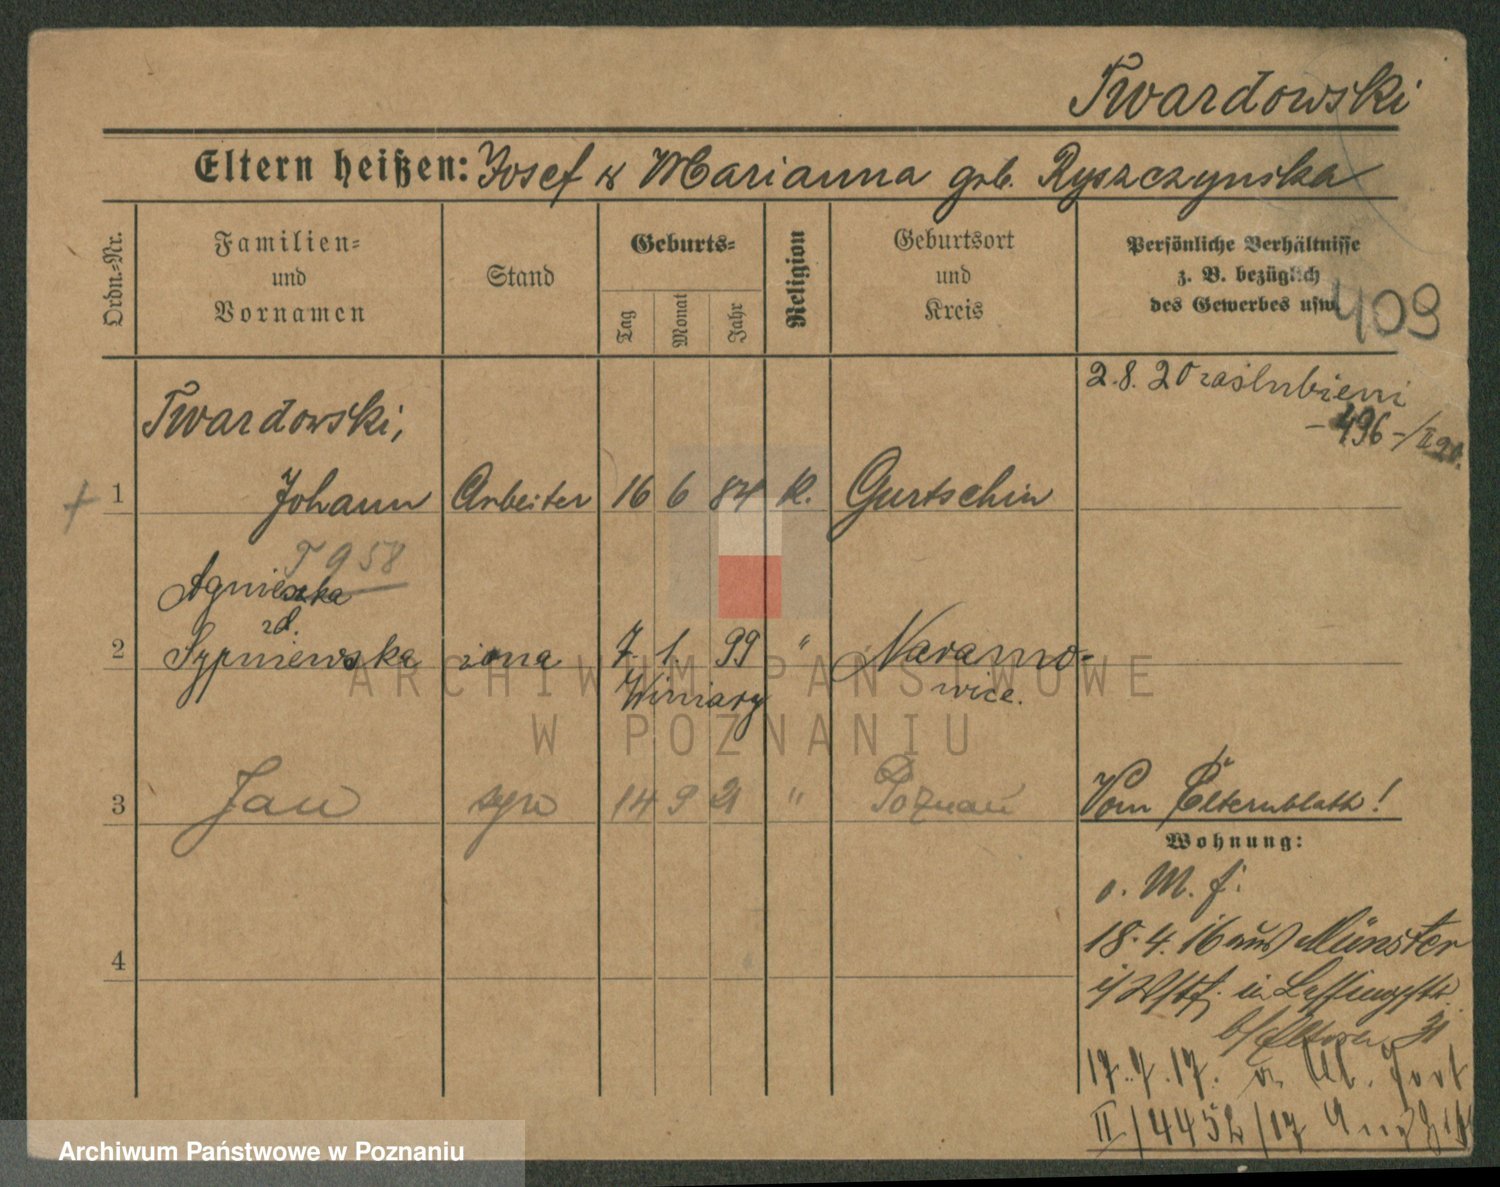 Twardowski
Eltern heißen: Josef & Marianna geb. Ryszczynska
Ordn.-Nr.
Familien-
und
Vornamen
Stand
Geburts-
Tag
Monat
Jahr
Religion
Geburtsort
und
Kreis
Persönliche Verhältnisse
z. B. bezüglich
des Gewerbes usw.
409
2.8.20 zaślubieni
-496-/II 20.
Twardowski,
1 Johann Arbeiter 16 6 84 k. Gurtschin
T 958
Agnieszka
zd.
2 Sypniewska żona 7. 1. 99 " Naramo-
Winiary wice.
3 Jan syn 14 9 21 " Poznań
Vom Elternblatt!
Wohnung:
4
v. M. f.
18.4.16 aus Münster
i/Westf. in Lessingstr.
b/Eltern 31
17.7.17.
II/4452/17
ARCHIWUM PAŃSTWOWE
W POZNANIU
Archiwum Państwowe w Poznaniu